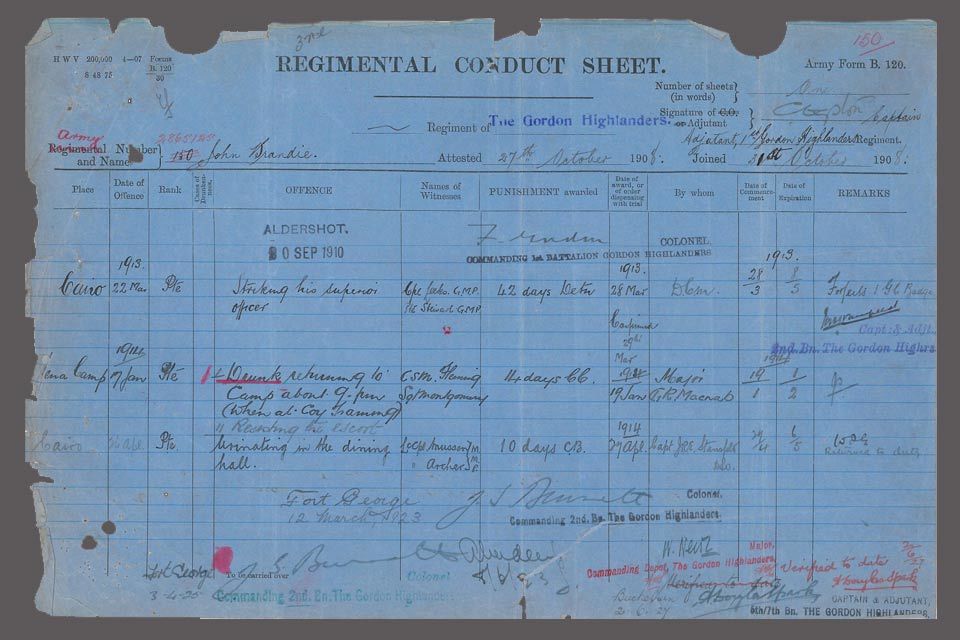 3rd
150
H W V 200,000 4—07 Forms B. 120/30
8 48 75
REGIMENTAL CONDUCT SHEET.
Army Form B. 120.
Number of sheets (in words) One
Signature of C.O. or Adjutant Captain
Regiment of The Gordon Highlanders.
Adjutant, 1st Gordon Highlanders Regiment.
Army
Regimental Number and Name 2865125
150 John Brandie.
Attested 27th October 1908. Joined 31st October 1908.
Place Date of Offence Rank Cases of Drunkenness OFFENCE Names of Witnesses PUNISHMENT awarded Date of award, or of order dispensing with trial By whom Date of Commencement Date of Expiration REMARKS
ALDERSHOT.
20 SEP 1910
COLONEL,
COMMANDING 1st BATTALION GORDON HIGHLANDERS
1913. 1913. 1913.
Cairo 22 Mar Pte Striking his superior officer 42 days Detn 28 Mar D.C.M. 28/3 8/5 Forfeits 1 G.C. Badge
Cpl G.M.P.
Pte Stewart G.M.P.
Confirmed 29th Mar
Capt: & Adjt.,
2nd. Bn. The Gordon Highra
1914 1914
Mena Camp 17 Jan Pte 1 Drunk returning to Camp about 9. pm (when at Coy Training)
C.S.M. Fleming
Sgt Montgomery
14 days CC. 1914 19 Jan Major G.R. Macnab 19/1 1/2
11 Resisting the escort
1914
Cairo 26 Apl Pte Urinating in the dining hall.
Archer
10 days C.B. 27 Apl Capt 27/4 6/5
Returned to duty
Fort George
12 March, 1923
Colonel.
Commanding 2nd. Bn. The Gordon Highlanders.
Fort George
3-4-25
To be carried over
Colonel
Commanding 2nd. Bn. The Gordon Highlanders
Aberdeen
Major.
Commanding Depot, The Gordon Highlanders.
Verified to date
2.6.27
Verified to date
2/6/27
CAPTAIN & ADJUTANT,
5th/7th Bn. THE GORDON HIGHLANDERS.